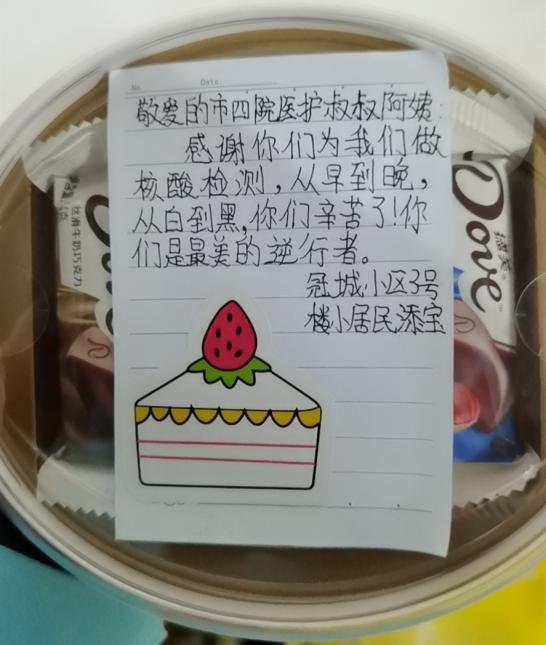 No.
Date:
敬爱的市四院医护叔叔阿姨：
感谢你们为我们做
核酸检测，从早到晚，
从白到黑，你们辛苦了！你
们是最美的逆行者。
冠城小区3号
楼小居民添宝
丝滑牛奶巧克力
Dove
德芙